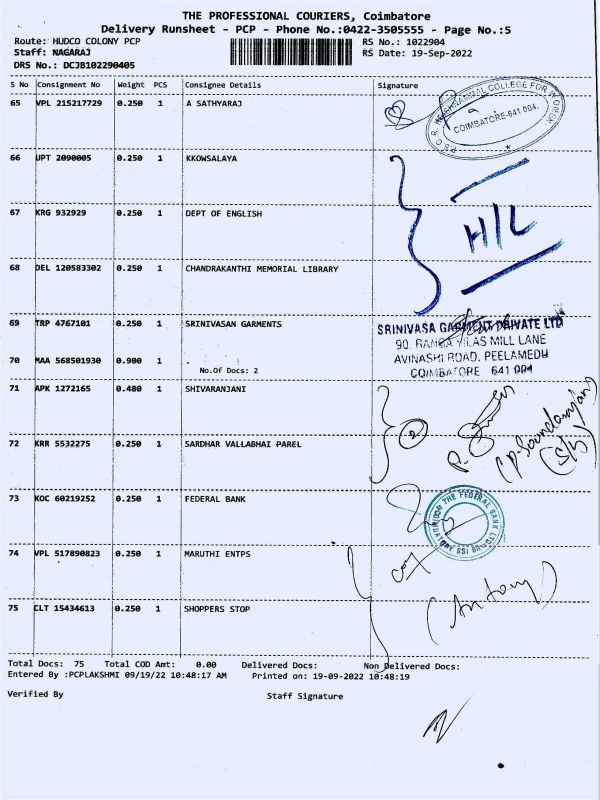 THE PROFESSIONAL COURIERS, Coimbatore
Delivery Runsheet - PCP - Phone No.:0422-3505555 - Page No.:5
Route: HUDCO COLONY PCP RS No.: 1022904
Staff: NAGARAJ RS Date: 19-Sep-2022
DRS No.: DCJB102290405
S No Consignment No Weight PCS Consignee Details Signature
65 VPL 215217729 0.250 1 A SATHYARAJ
KRISHNAMMAL COLLEGE FOR WOMEN
COIMBATORE-641 004.
66 UPT 2090005 0.250 1 KKOWSALAYA
67 KRG 932929 0.250 1 DEPT OF ENGLISH
H/L
68 DEL 120583302 0.250 1 CHANDRAKANTHI MEMORIAL LIBRARY
69 TRP 4767101 0.250 1 SRINIVASAN GARMENTS
SRINIVASA GARMENT PRIVATE LTD
90, RANGA VILAS MILL LANE
AVINASHI ROAD, PEELAMEDU
COIMBATORE 641 004
70 MAA 568501930 0.900 1
No.Of Docs: 2
71 APK 1272165 0.480 1 SHIVARANJANI
2
72 KRR 5532275 0.250 1 SARDHAR VALLABHAI PAREL
73 KOC 60219252 0.250 1 FEDERAL BANK
THE FEDERAL BANK LTD
74 VPL 517890823 0.250 1 MARUTHI ENTPS
(Antony)
75 CLT 15434613 0.250 1 SHOPPERS STOP
Total Docs: 75 Total COD Amt: 0.00 Delivered Docs: Non Delivered Docs:
Entered By :PCPLAKSHMI 09/19/22 10:48:17 AM Printed on: 19-09-2022 10:48:19
Verified By Staff Signature